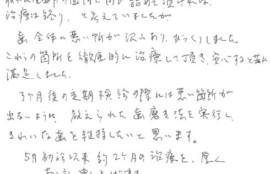 治療は終り、と考えていましたが
歯全体に悪い所が沢山あり、びっくりしました。
これらの箇所を徹底的に治療して頂き、安心すると共に
満足しました。
3ヶ月後の定期検診の際には悪い箇所が
出ないように、教えられた歯磨き法を実行し、
きれいな歯を維持したいと思います。
5月初診以来約2ヶ月の治療を、厚く